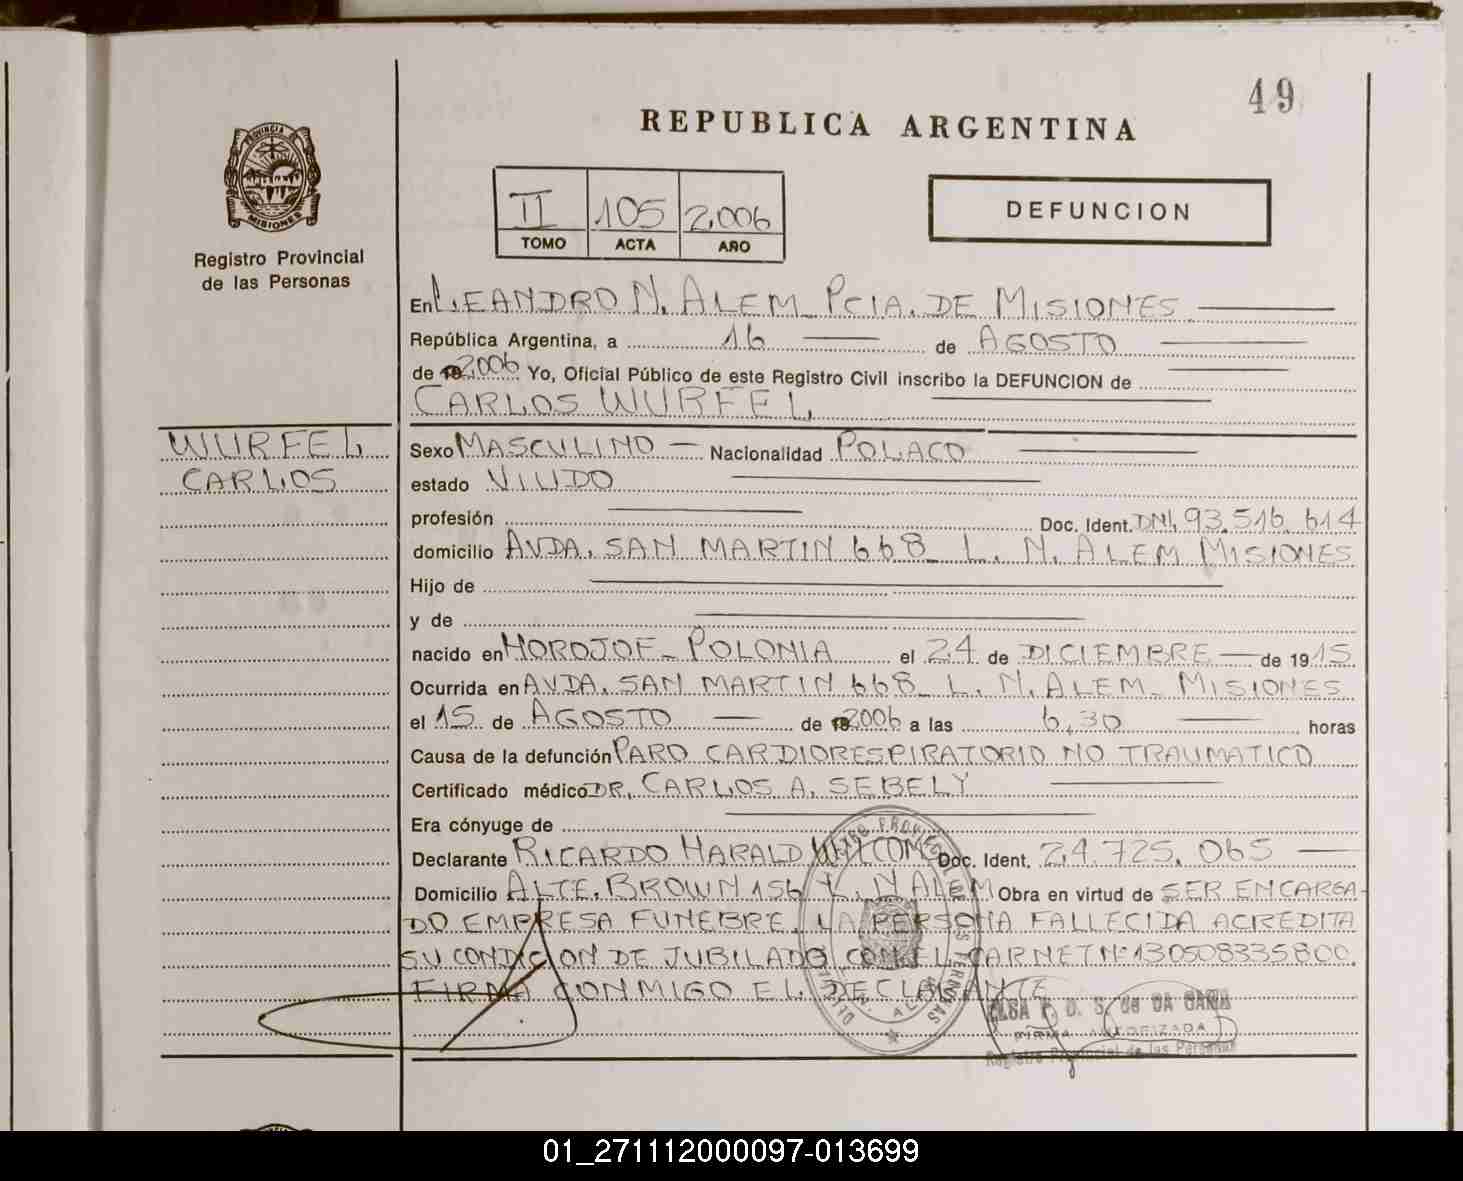 49
REPUBLICA ARGENTINA
PROVINCIA DE
MISIONES
Registro Provincial
de las Personas
II 105 2.006
TOMO ACTA AÑO
DEFUNCION
En L. EANDRO N. ALEM - PCIA. DE MISIONES
República Argentina, a 16 de AGOSTO
de 2006 Yo, Oficial Público de este Registro Civil inscribo la DEFUNCION de
CARLOS WURFEL
WURFEL
CARLOS
Sexo MASCULINO - Nacionalidad POLACO
estado VIUDO
profesión Doc. Ident. DNI. 93.516.614
domicilio AVDA. SAN MARTIN 668 - L. N. ALEM MISIONES
Hijo de
y de
nacido en HOROJOF - POLONIA el 24 de DICIEMBRE de 1915
Ocurrida en AVDA. SAN MARTIN 668 - L. N. ALEM - MISIONES
el 15 de AGOSTO de 2006 a las 6,30 horas
Causa de la defunción PARO CARDIORESPIRATORIO NO TRAUMATICO
Certificado médico DR. CARLOS A. SEBELY
Era cónyuge de
Declarante RICARDO HARALD Doc. Ident. 24.725.065
Domicilio ALTE. BROWN 156 L. N ALEM Obra en virtud de SER ENCARGA-
DO EMPRESA FUNEBRE. LA PERSONA FALLECIDA ACREDITA
SU CONDICION DE JUBILADO CON EL CARNET Nº 130508335800.
FIRMA CONMIGO EL DECLARANTE
ELSA D. S. de DA GAMA
FIRMA AUTORIZADA
Registro Provincial de las Personas
01_271112000097-013699